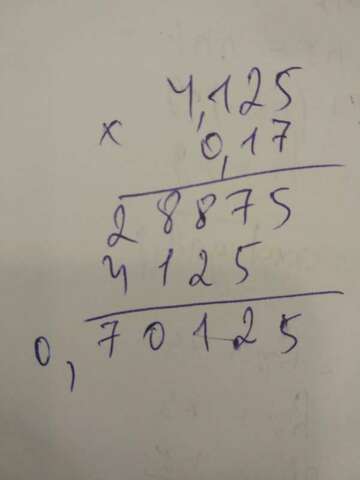 4,125
x 0,17
28875
4125
0,70125